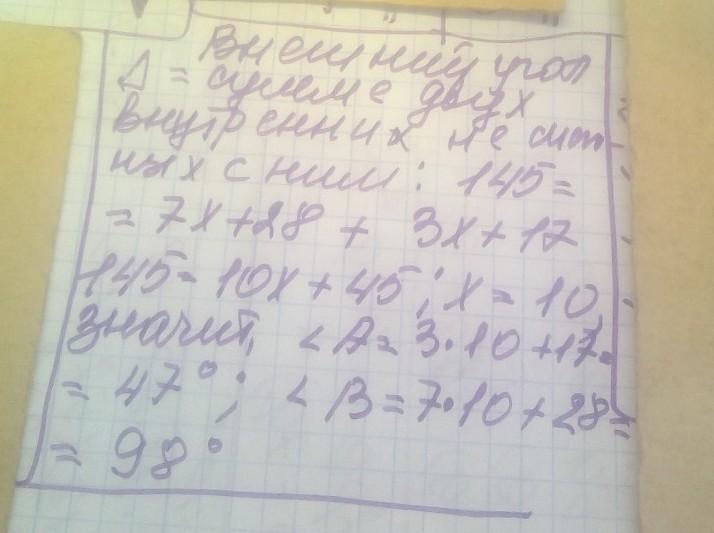 Внешний угол
Δ = сумме двух
внутренних не смеж-
ных с ним: 145=
= 7x+28 + 3x+17
145= 10x+45; x=10,
значит, <A=3·10+17=
= 47°; <B=7·10+28=
= 98°